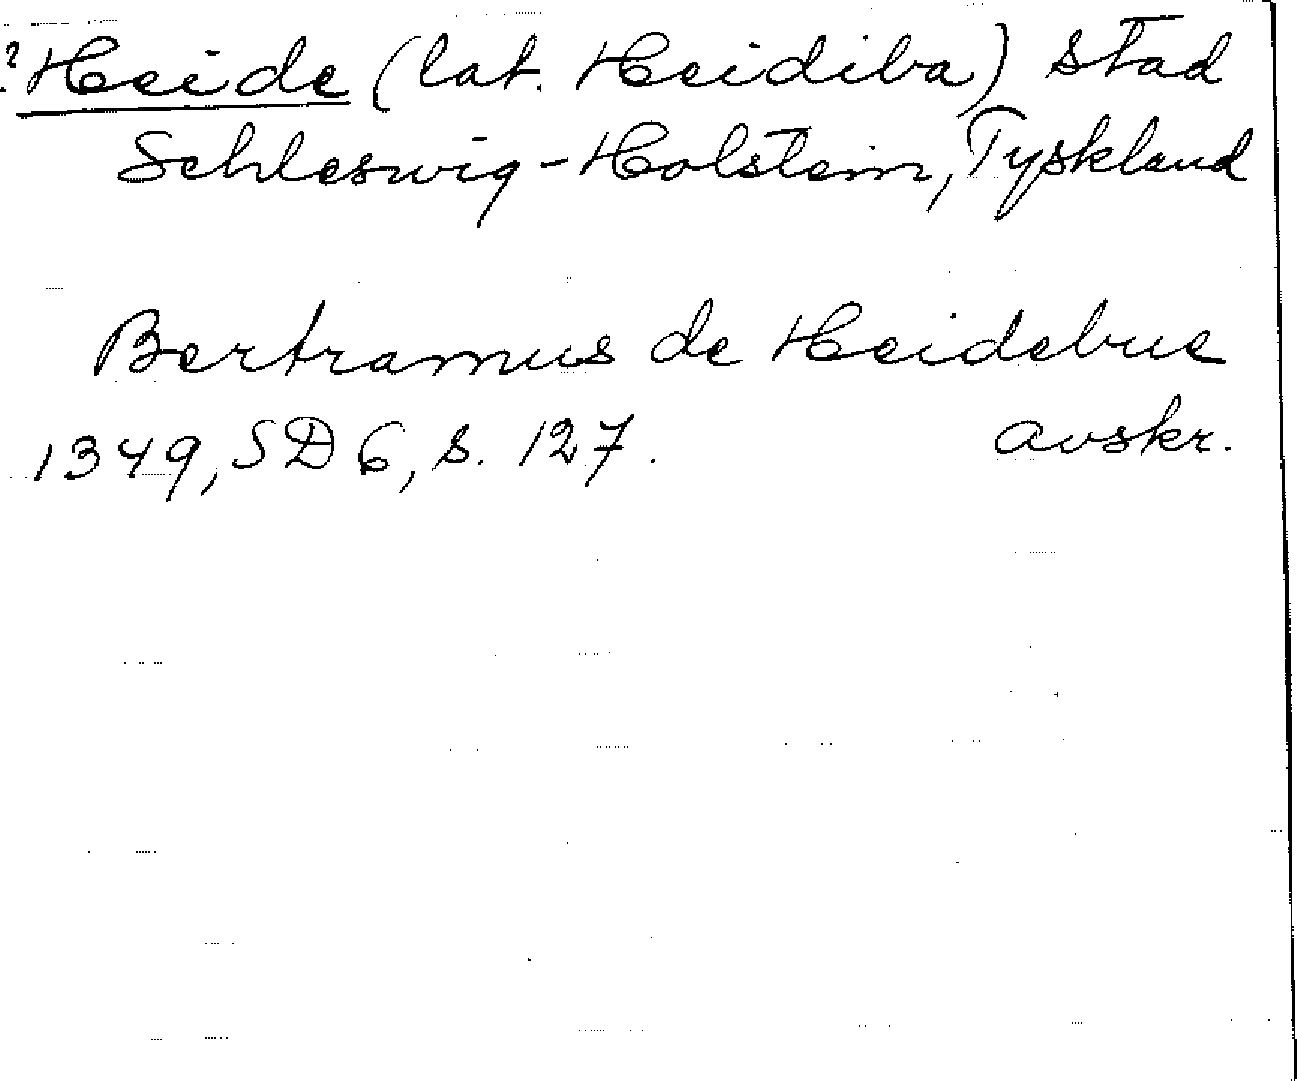 ? Heide (lat. Heidiba) stad
Schleswig-Holstein, Tyskland
Bertramus de Heidebue
1349, SD 6, s. 127. avskr.